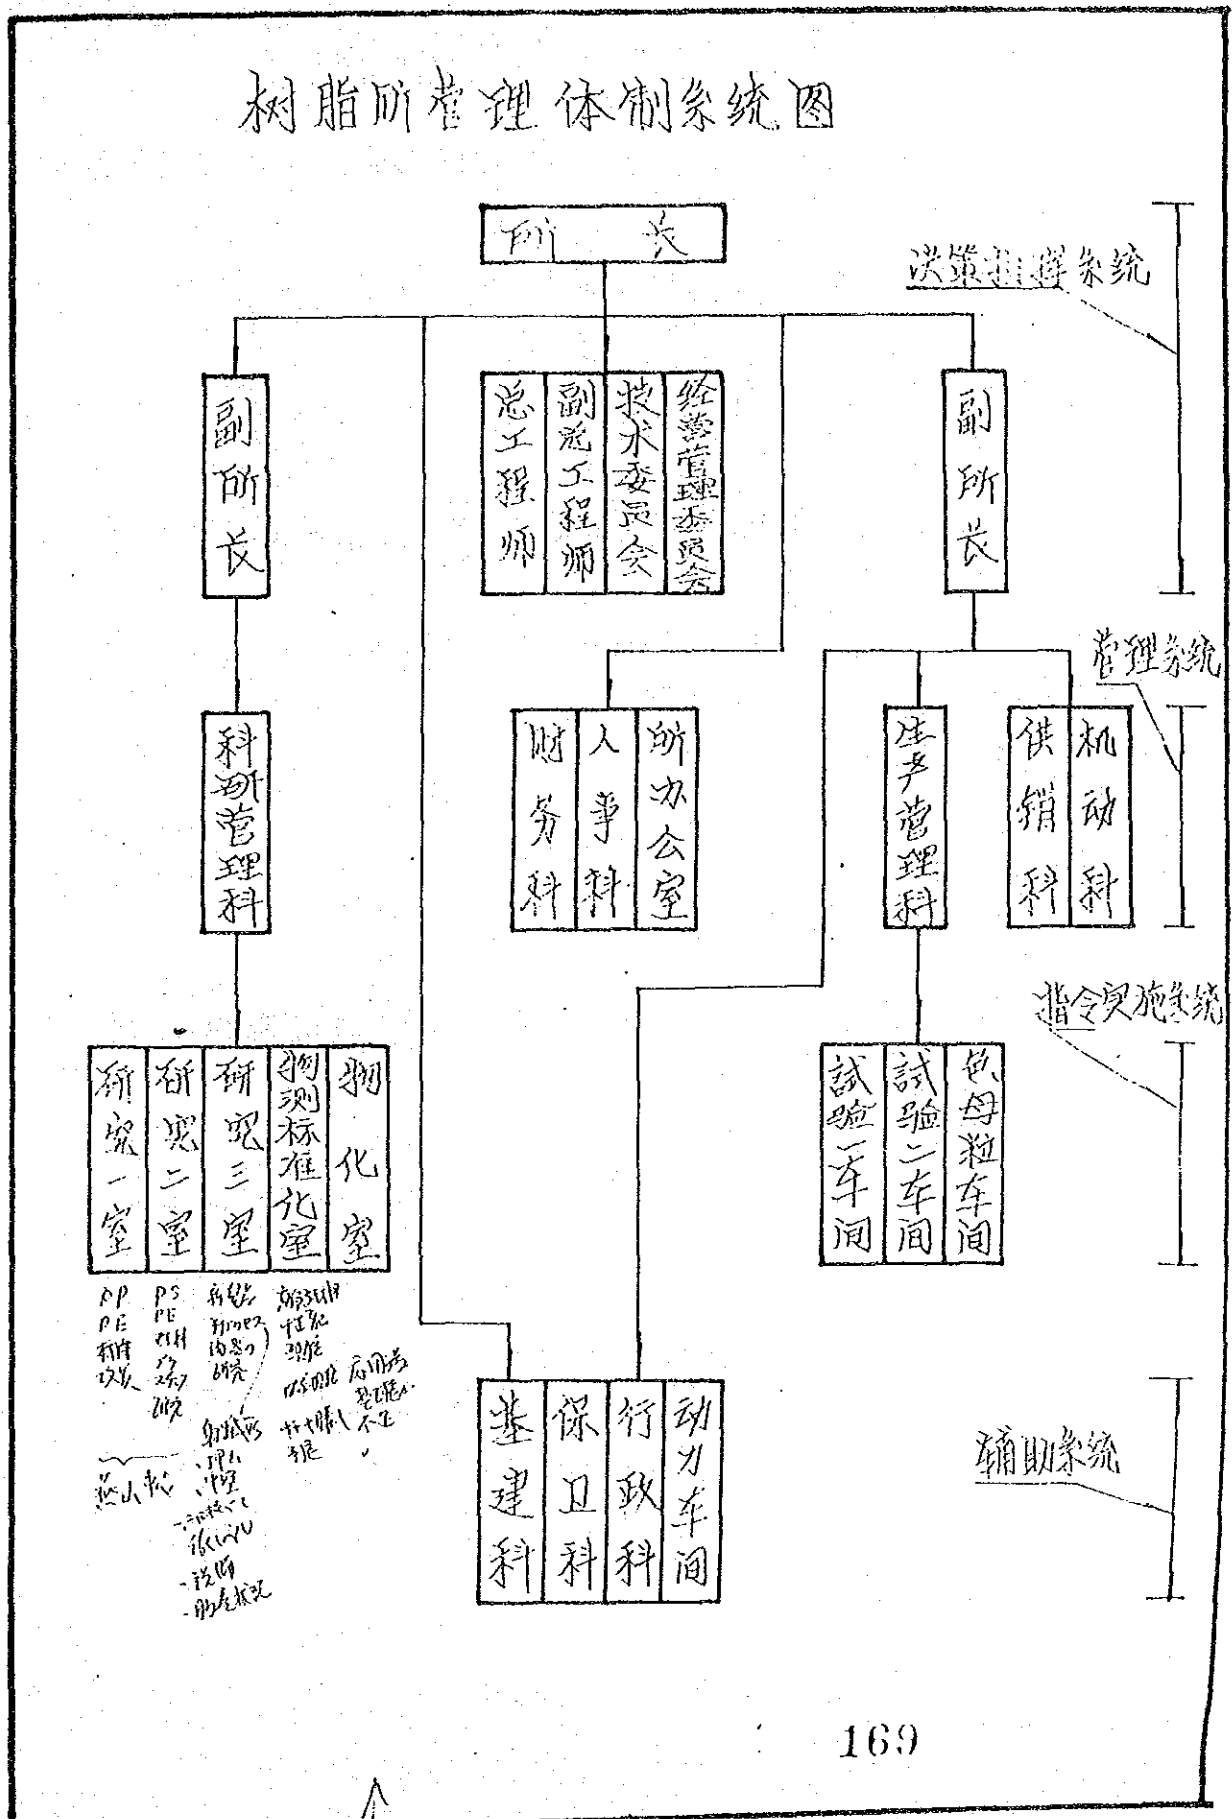 树脂所管理体制系统图
所 长
决策指挥系统
副所长
总工程师
副总工程师
技术委员会
经营管理委员会
副所长
管理系统
科研管理科
财务科
人事科
所办公室
生产管理科
供销科
机动科
指令实施系统
研究一室
研究二室
研究三室
物测标准化室
物化室
試验一车间
試验二车间
色母粒车间
PP
PE
PS
PE
研究
基建科
保卫科
行政科
动力车间
辅助系统
169